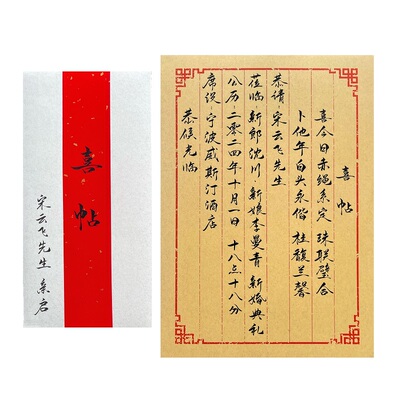 喜帖
宋云飞先生 亲启
喜帖
喜今日赤绳系定 珠联璧合
卜他年白头永偕 桂馥兰馨
恭请 宋云飞先生
莅临 新郎沈川 新娘李曼青 新婚典礼
公历 二零二四年十月一日 十八点十八分
席设 宁波威斯汀酒店
恭候光临